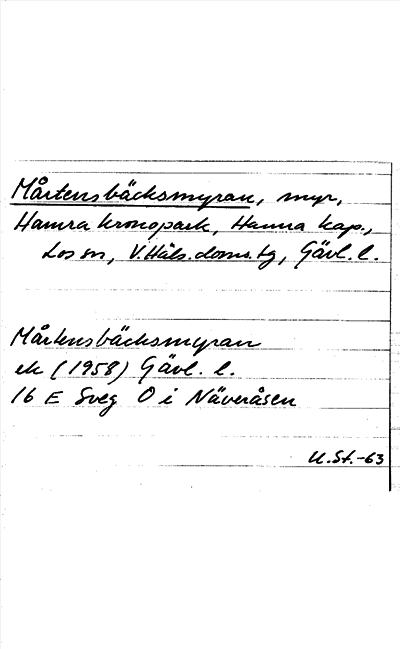 Mårtensbäcksmyran, myr,
Hamra kronopark, Hamra kap.,
Los sn, V.Häls.doms.tg, Gävl. l.
Mårtensbäcksmyran
ek (1958) Gävl. l.
16 E Sveg O i Näveråsen
U.St.-63